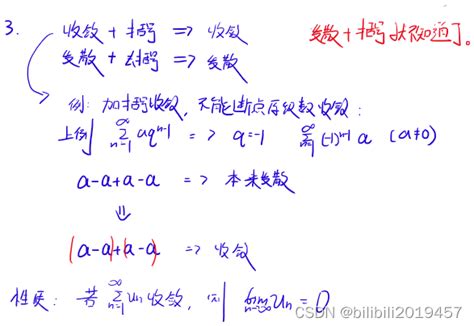 3. 收敛 + 括号 => 收敛
发散 + 去括号 => 发散
发散 + 括号 就不知道了。
例: 加括号收敛, 不能断点原级数收敛:
上例 ∑_{n=1}^{∞} aq^{n-1} => q=-1 ∑_{n=1}^{∞} (-1)^{n-1} a (a≠0)
a-a+a-a => 本来发散
⇓
(a-a)+(a-a) => 收敛
性质: 若 ∑_{n=1}^{∞} Un 收敛, 则 lim_{n→∞} Un = 0
CSDN @bilibili2019457